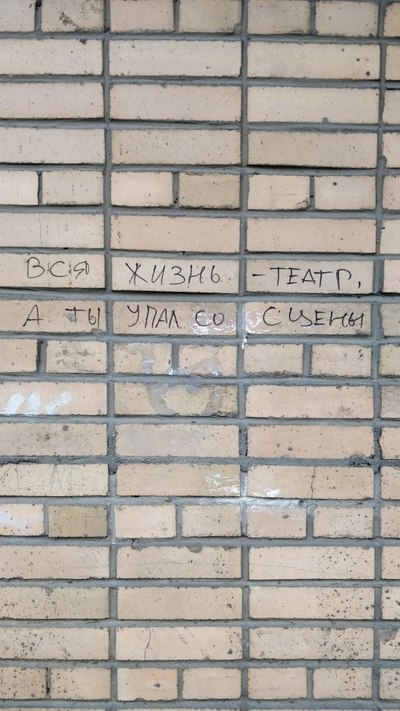 ВСЯ ЖИЗНЬ - ТЕАТР,
А ТЫ УПАЛ СО СЦЕНЫ